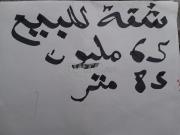 شقة للبيع
65 مليون
85 متر